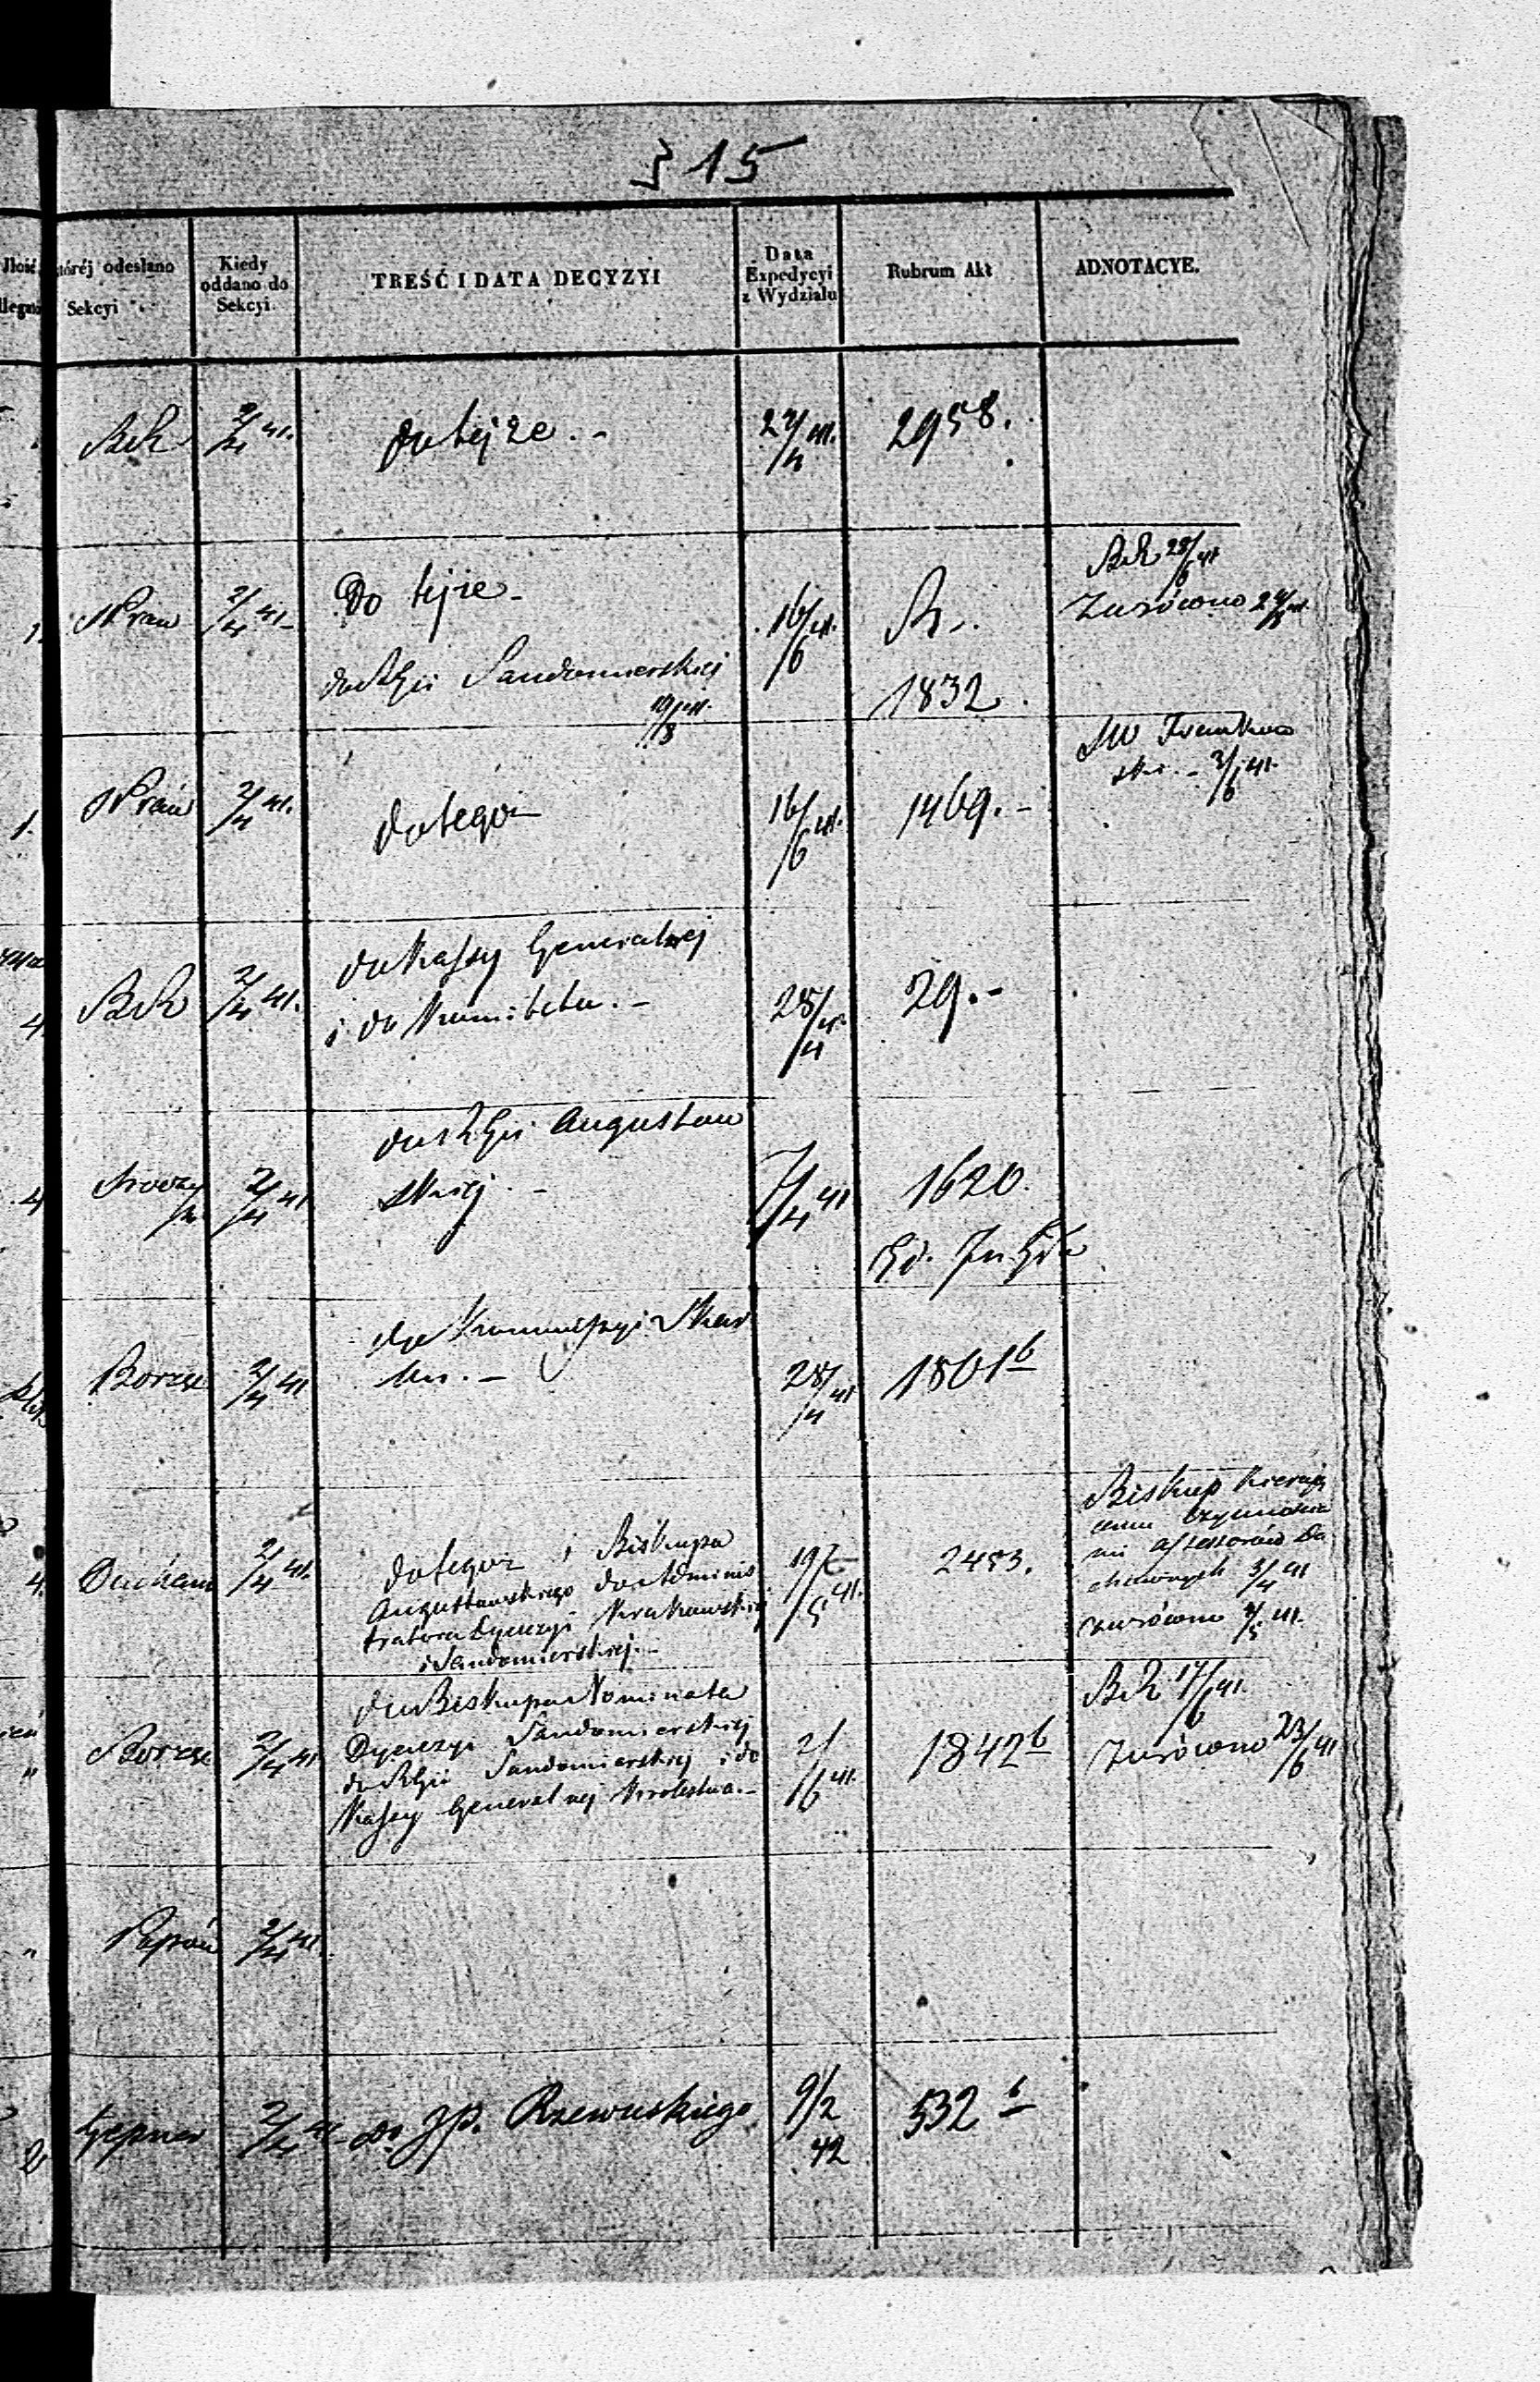 315
Ilość
któréj odesłano
Sekcyi
Kiedy
oddano do
Sekcyi
TREŚĆ I DATA DECYZYI
Data
Expedycyi
z Wydziału
Rubrum Akt
ADNOTACYE.
2/4 41.
do tejże. -
27/4 41.
2958.
1.
2/4 41.
Do tejże -
do RGu Sandomierskiej
19/8 41.
16/6 41.
1832.
28/6 41
Zwrócono
1.
2/4 41.
do tegoż
16/6 41.
1469. -
2/6 41.
4.
2/4 41.
do Kassy Generalnej
i do Komitetu. -
28/4 41.
29. -
4
2/4 41
do RGu Augustow
skiej. -
7/4 41
1620.
Borzęc
2/4 41
do Kommissyi Skar
bu. -
28/4 41
1801 b
4.
Ducham
2/4 41.
do tegoż i Biskupa
Augustowskiego do Adminis
tratora Dyecezyi Krakowskiej
i Sandomierskiej. -
19/5 41.
2453.
Biskup Kierują
cemu czynnościa
mi Assessorów Du
chownych 3/4 41
zwrócono 4/5 41.
"
Borzęc
2/4 41
do Biskupa Nominata
Dyecezyi Sandomierskiej
do RGu Sandomierskiej i do
Kassy Generalnej Krolestwa. -
2/6 41.
1842 b
17/6 41.
Zwrócono 23/6 41
"
2/4 41.
2
Hepner
2/4 41
do JP. Rzewuskiego
9/2
42
532 b